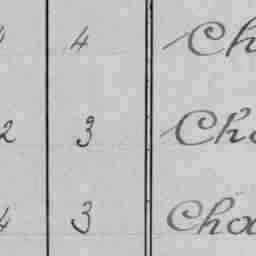 4 4 Ch
2 3 Cha
4 3 Cha